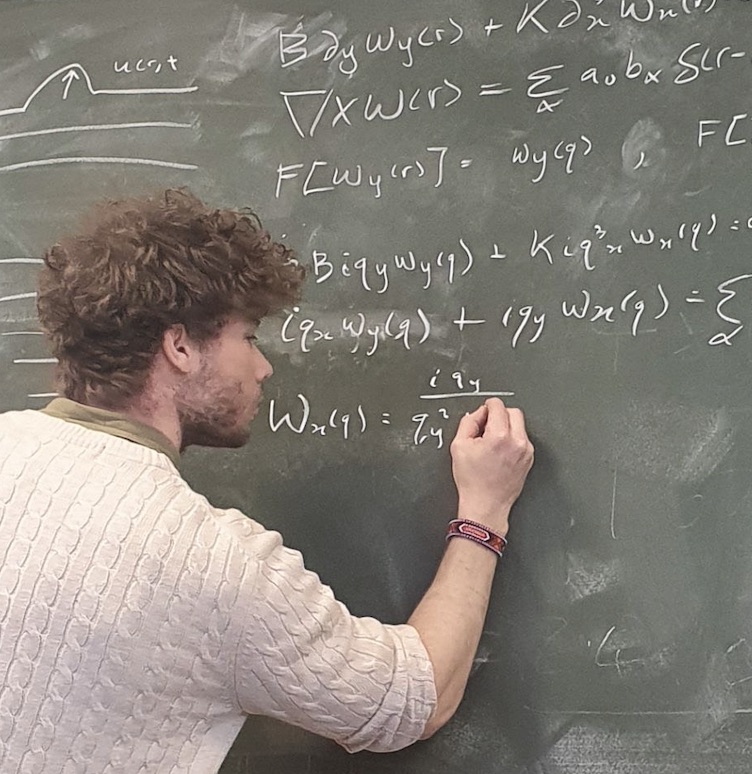 u(r,t
B∂yWy(r) + K∂³xWx(r)
∇×W(r) = Σα a₀bα δ(r-
F[Wy(r)] = Wy(q) , F[
Biqy Wy(q) + Kiq³x Wx(q) =
iqx Wy(q) + iqy Wx(q) = Σα
Wx(q) = iqy / q²y